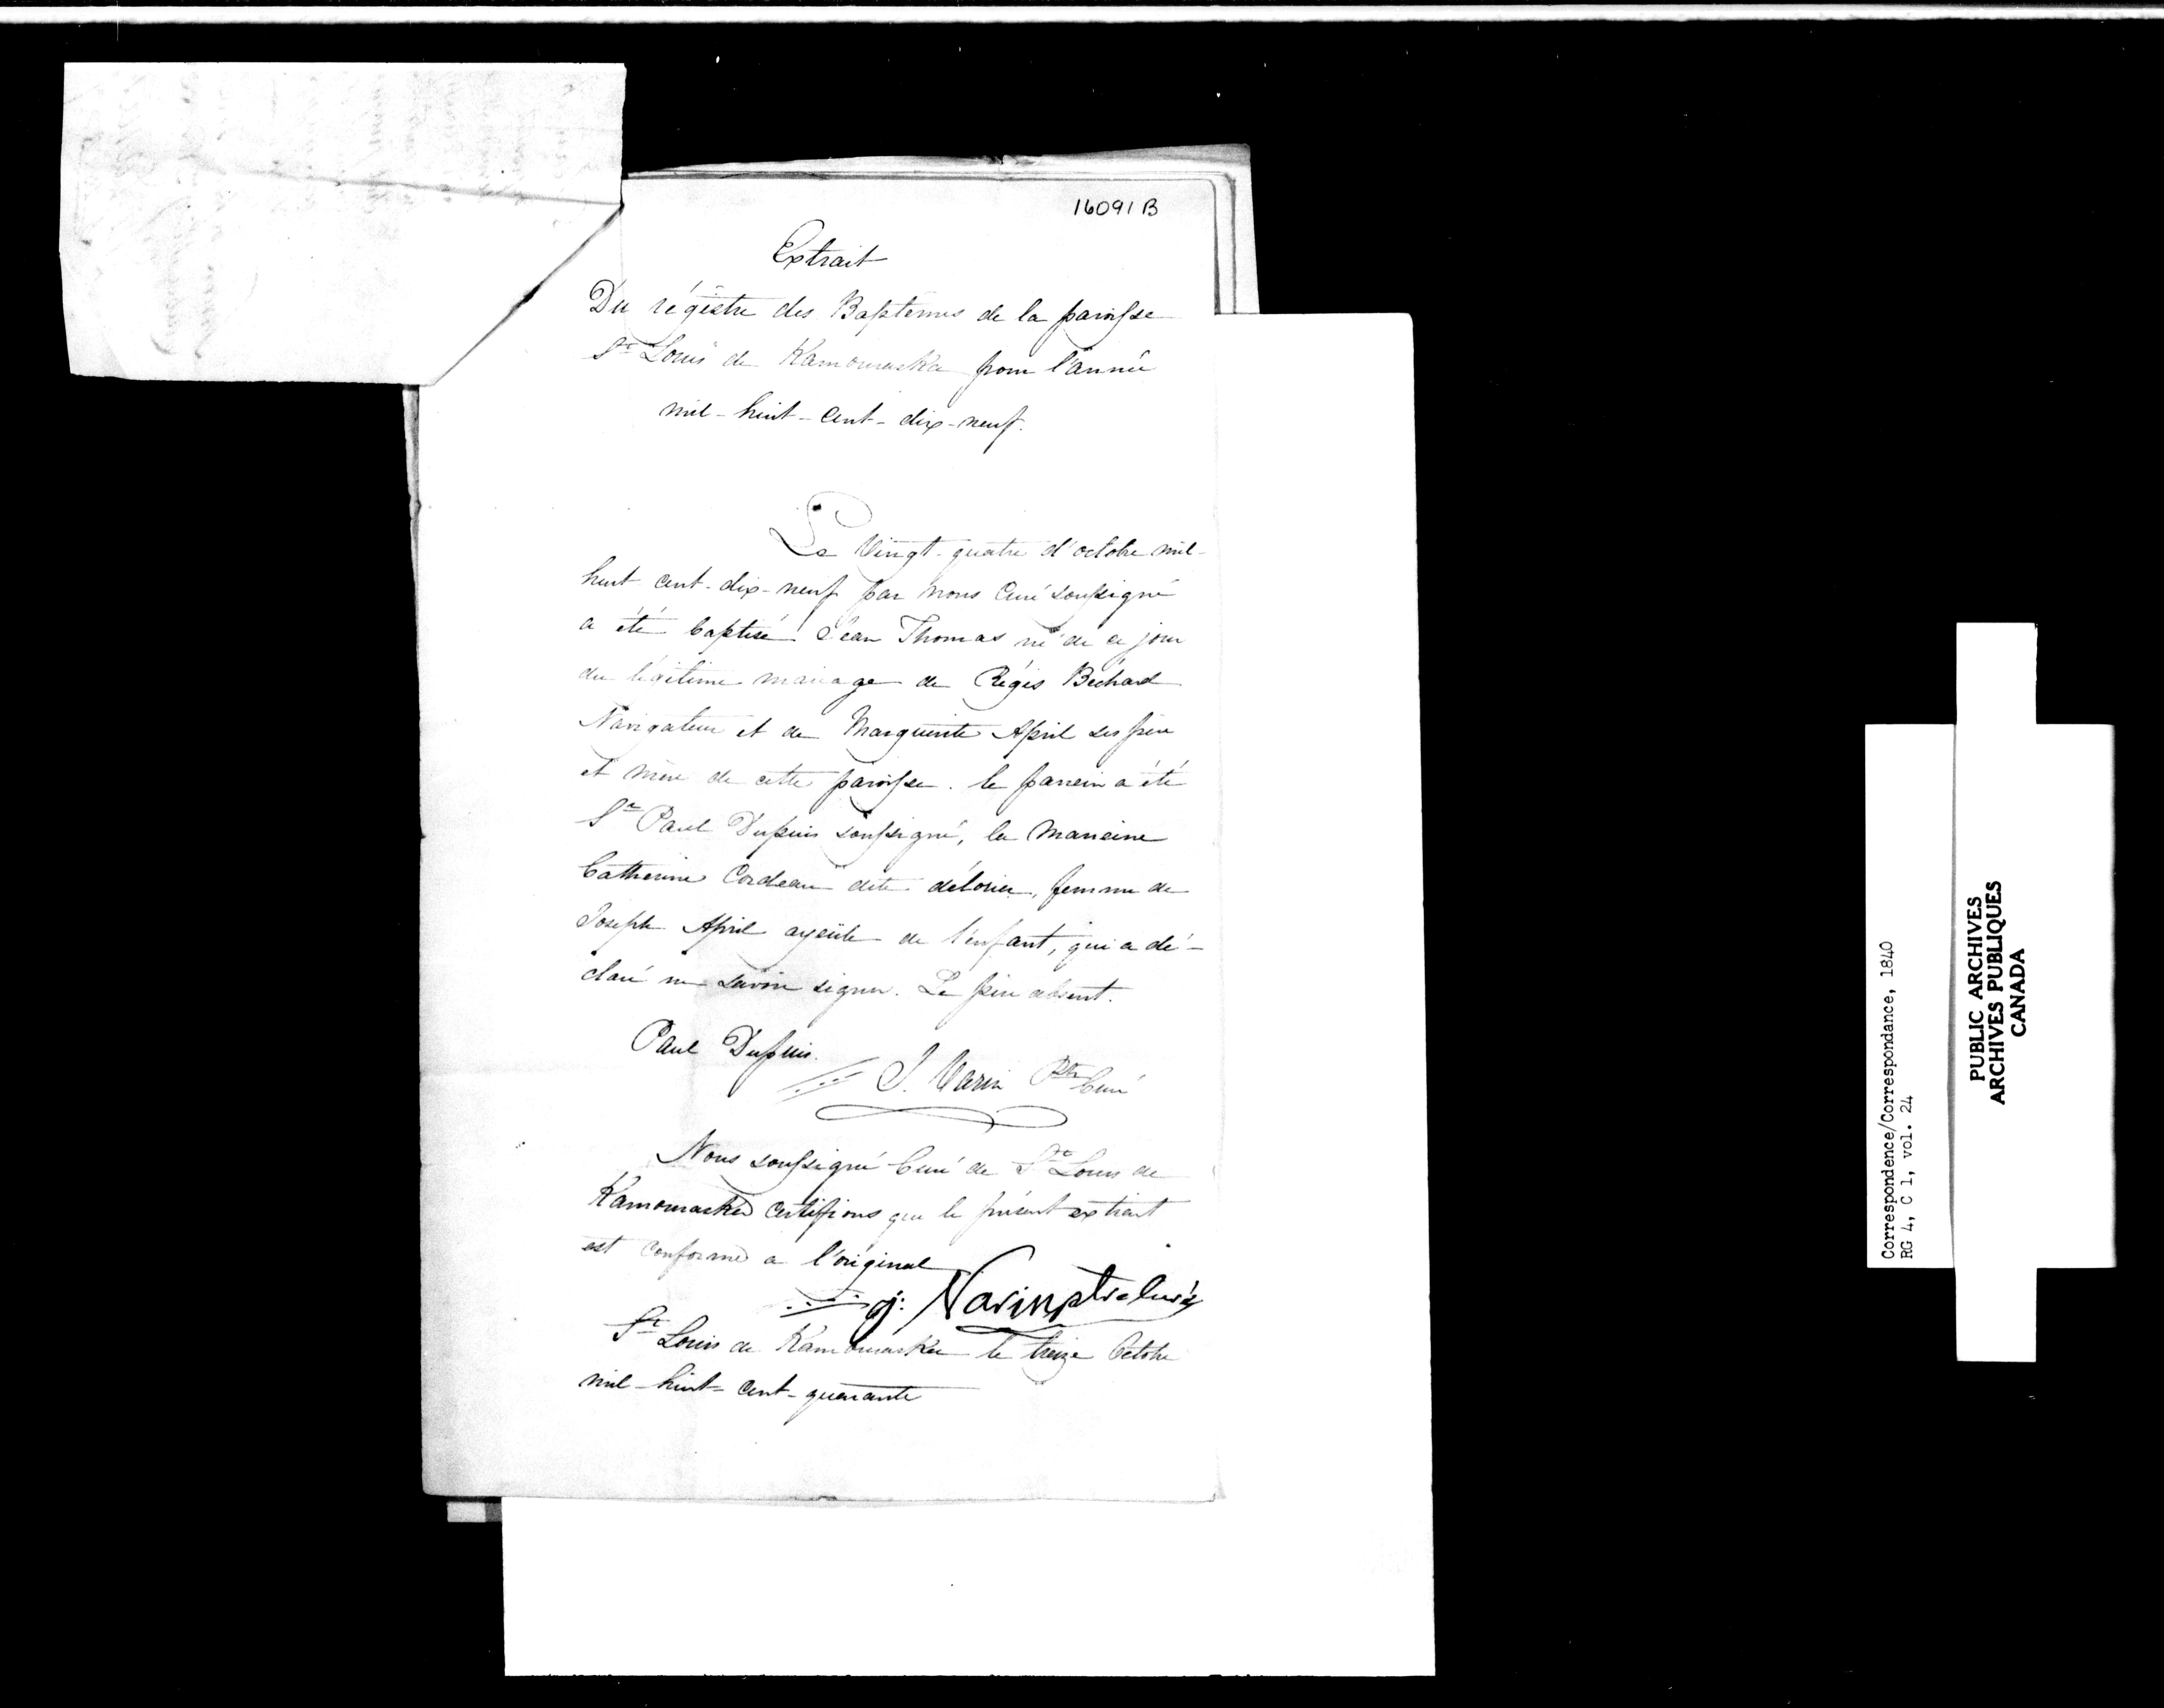 16091 B
Extrait
Du régistre des Baptemes de la paroisse
St Louis de Kamouraska pour l'année
mil-huit-cent-dix-neuf.
Le Vingt-quatre d'octobre mil-
huit cent-dix-neuf par nous Curé soussigné
a été baptisé Jean Thomas né de ce jour
du légitime mariage de Régis Béchard
Navigateur et de Marguerite April ses père
et mère de cette paroisse. le parrein a été
Sr Paul Dupuis soussigné, la Mareine
Catherine Cordeau dite délorier, femme de
Joseph April ayeüle de l'enfant, qui a dé-
claré ne savoir signer. Le père absent.
Paul Dupuis.
J. Varin Ptre Curé
Nous soussigné Curé de St Louis de
Kamouraska certifions que le présent extrait
est conforme a l'original
j. Varin ptre Curé
St Louis de Kamouraska le treize Octobre
mil-huit-cent-quarante
Correspondence/Correspondance, 1840
RG 4, C 1, vol. 24
PUBLIC ARCHIVES
ARCHIVES PUBLIQUES
CANADA